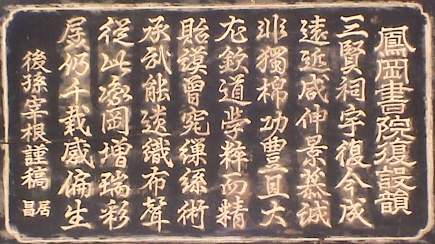 鳳岡書院復設韻
三賢祠宇復今成
遠近咸伸景慕誠
非獨棉功豊且大
尤欽道學粹而精
貽謨曾究繅絲術
承武能織布聲
從此岡增瑞彩
居仍千載感偏生
後孫宰根謹稿
居昌